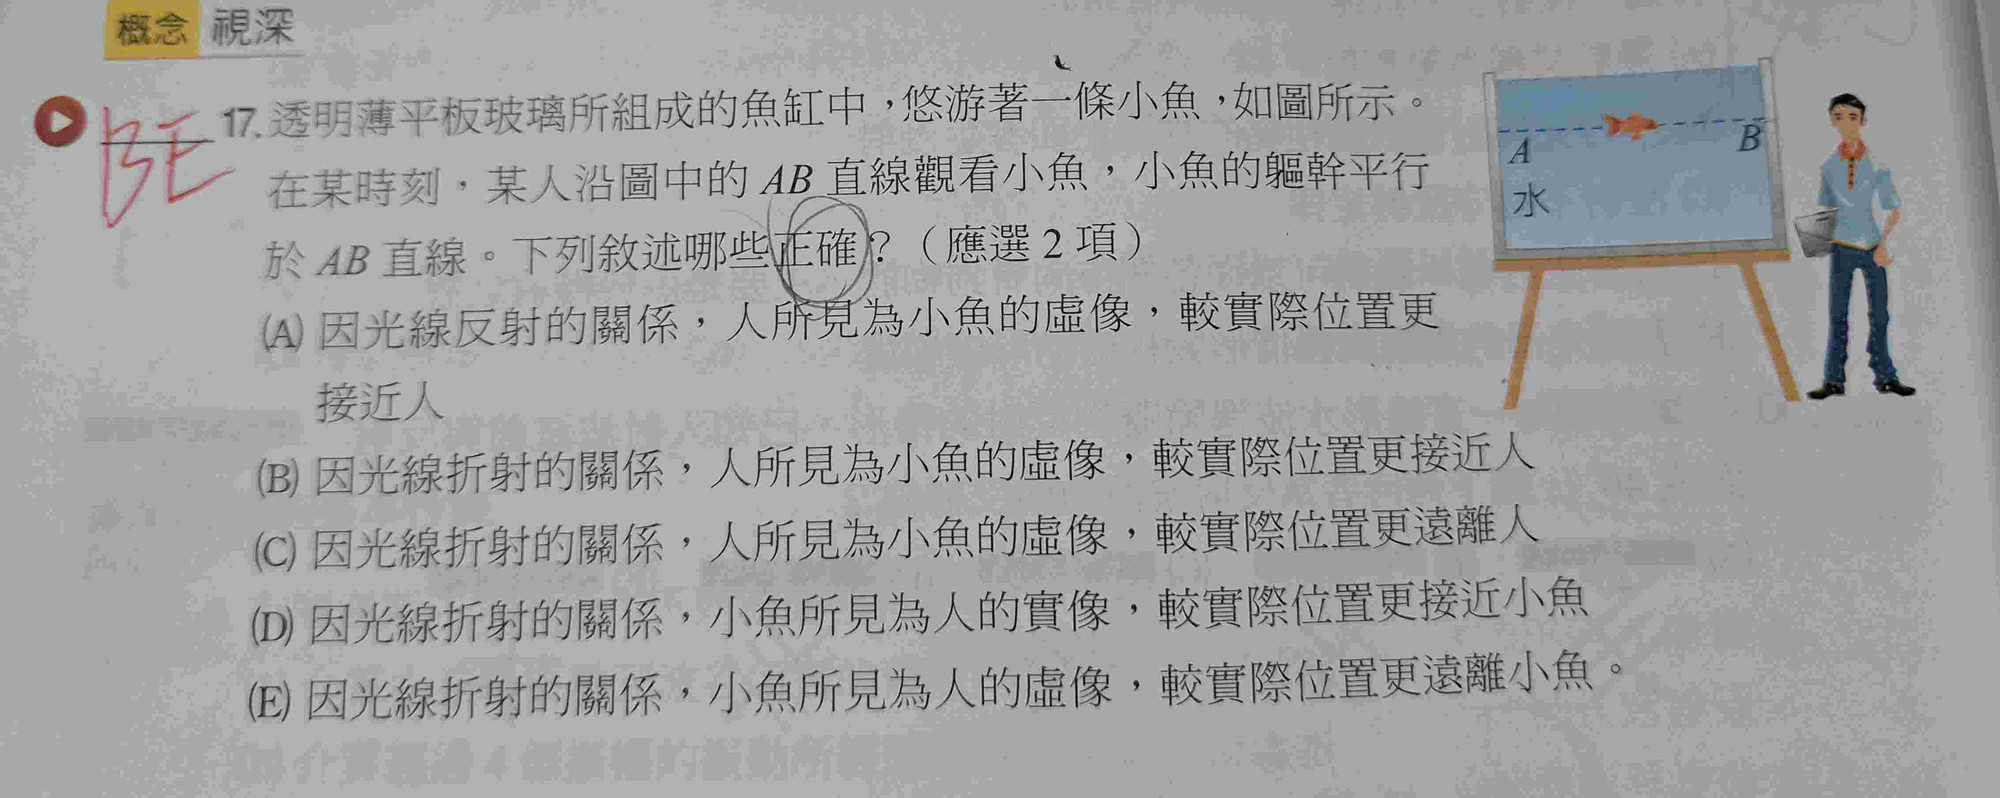 概念 視深
BE 17. 透明薄平板玻璃所組成的魚缸中,悠游著一條小魚,如圖所示。
在某時刻,某人沿圖中的 AB 直線觀看小魚,小魚的軀幹平行
於 AB 直線。下列敘述哪些正確?(應選 2 項)
(A) 因光線反射的關係,人所見為小魚的虛像,較實際位置更
接近人
(B) 因光線折射的關係,人所見為小魚的虛像,較實際位置更接近人
(C) 因光線折射的關係,人所見為小魚的虛像,較實際位置更遠離人
(D) 因光線折射的關係,小魚所見為人的實像,較實際位置更接近小魚
(E) 因光線折射的關係,小魚所見為人的虛像,較實際位置更遠離小魚。
A B
水